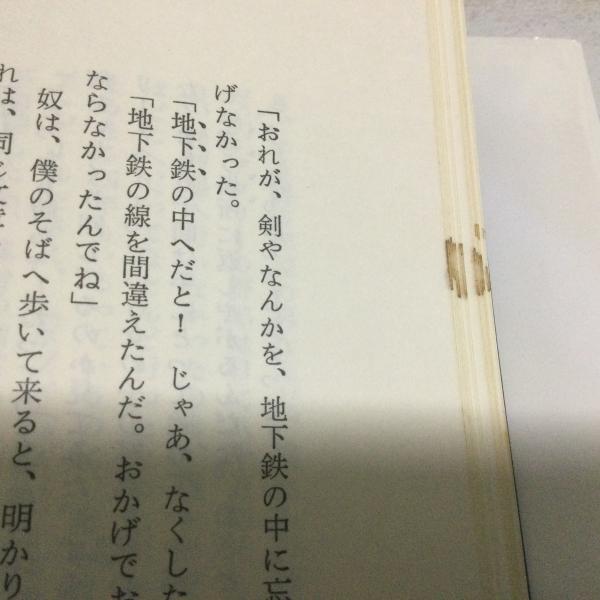 「おれが、剣やなんかを、地下鉄の中に忘
げなかった。
「地下鉄の中へだと！　じゃあ、なくした
「地下鉄の線を間違えたんだ。おかげでお
ならなかったんでね」
奴は、僕のそばへ歩いて来ると、明かり
れは、同じ